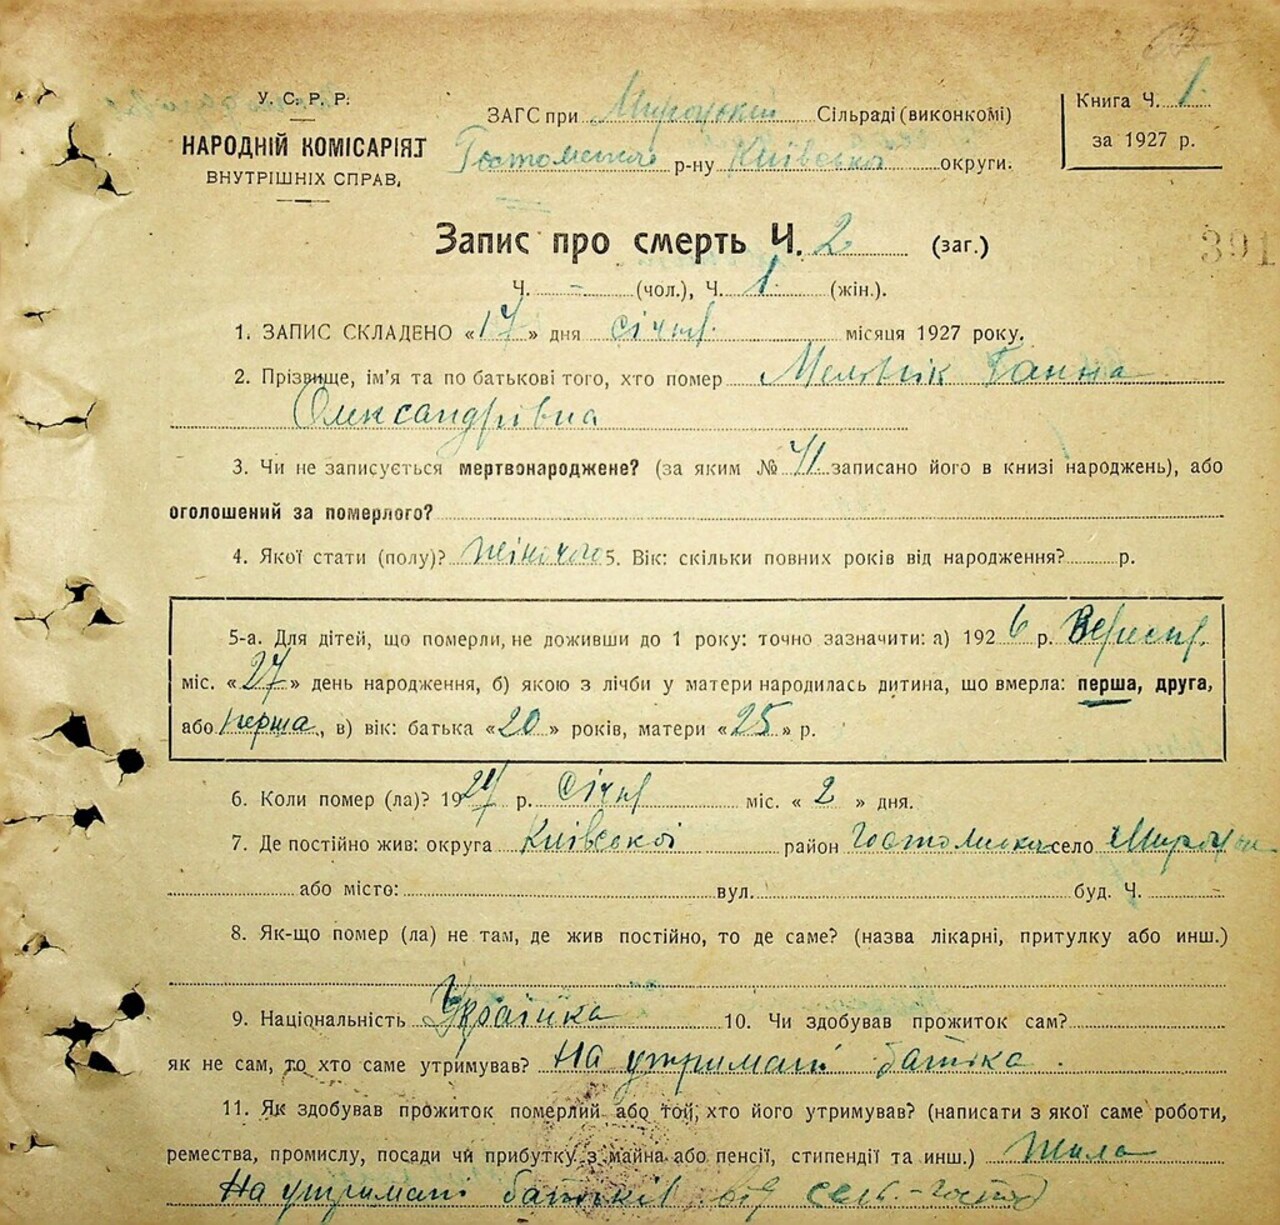 У. С. Р. Р.
НАРОДНІЙ КОМІСАРІЯТ
ВНУТРІШНІХ СПРАВ.
ЗАГС при Мироцькій Сільраді (виконкомі)
Гостомельськ р-ну Київської округи.
Книга Ч. 1.
за 1927 р.
391
Запис про смерть Ч. 2 (заг.)
Ч. - (чол.), Ч. 1 (жін.).
1. ЗАПИС СКЛАДЕНО «17» дня січня місяця 1927 року.
2. Прізвище, ім'я та по батькові того, хто помер Мельник Ганна
Олександрівна
3. Чи не записується мертвонароджене? (за яким № 41 записано його в книзі народжень), або
оголошений за померлого?
4. Якої стати (полу)? жіночого 5. Вік: скільки повних років від народження? р.
5-а. Для дітей, що померли, не доживши до 1 року: точно зазначити: а) 1926 р. Вересня
міс. «27» день народження, б) якою з лічби у матери народилась дитина, що вмерла: перша, друга,
або перша, в) вік: батька «20» років, матери «25» р.
6. Коли помер (ла)? 1927 р. Січня міс. «2» дня.
7. Де постійно жив: округа Київської район Гостомльска село Мироцьк
або місто: вул. буд. Ч.
8. Як-що помер (ла) не там, де жив постійно, то де саме? (назва лікарні, притулку або инш.)
9. Національність Українка 10. Чи здобував прожиток сам?
як не сам, то хто саме утримував? На утримані батька.
11. Як здобував прожиток померлий або той, хто його утримував? (написати з якої саме роботи,
ремества, промислу, посади чи прибутку з майна або пенсії, стипендії та инш.) Жила
На утримані батьків від сель.-госпо